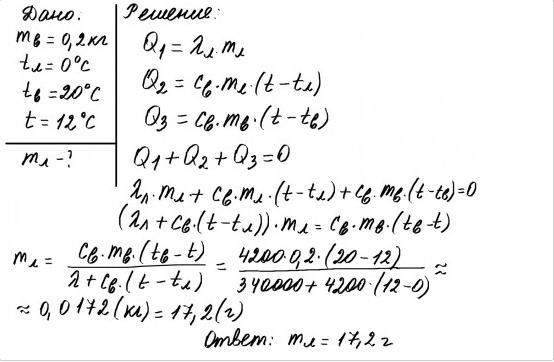 Дано:
mв = 0,2 кг
tл = 0°C
tв = 20°C
t = 12°C
mл - ?
Решение:
Q1 = λл·mл
Q2 = cв·mл·(t-tл)
Q3 = cв·mв·(t-tв)
Q1 + Q2 + Q3 = 0
λл·mл + cв·mл·(t-tл) + cв·mв·(t-tв) = 0
(λл + cв·(t-tл))·mл = cв·mв·(tв-t)
mл = cв·mв·(tв-t) / λ + cв·(t-tл) = 4200·0,2·(20-12) / 340000 + 4200·(12-0) ≈
≈ 0,0172 (кг) = 17,2 (г)
Ответ: mл = 17,2 г